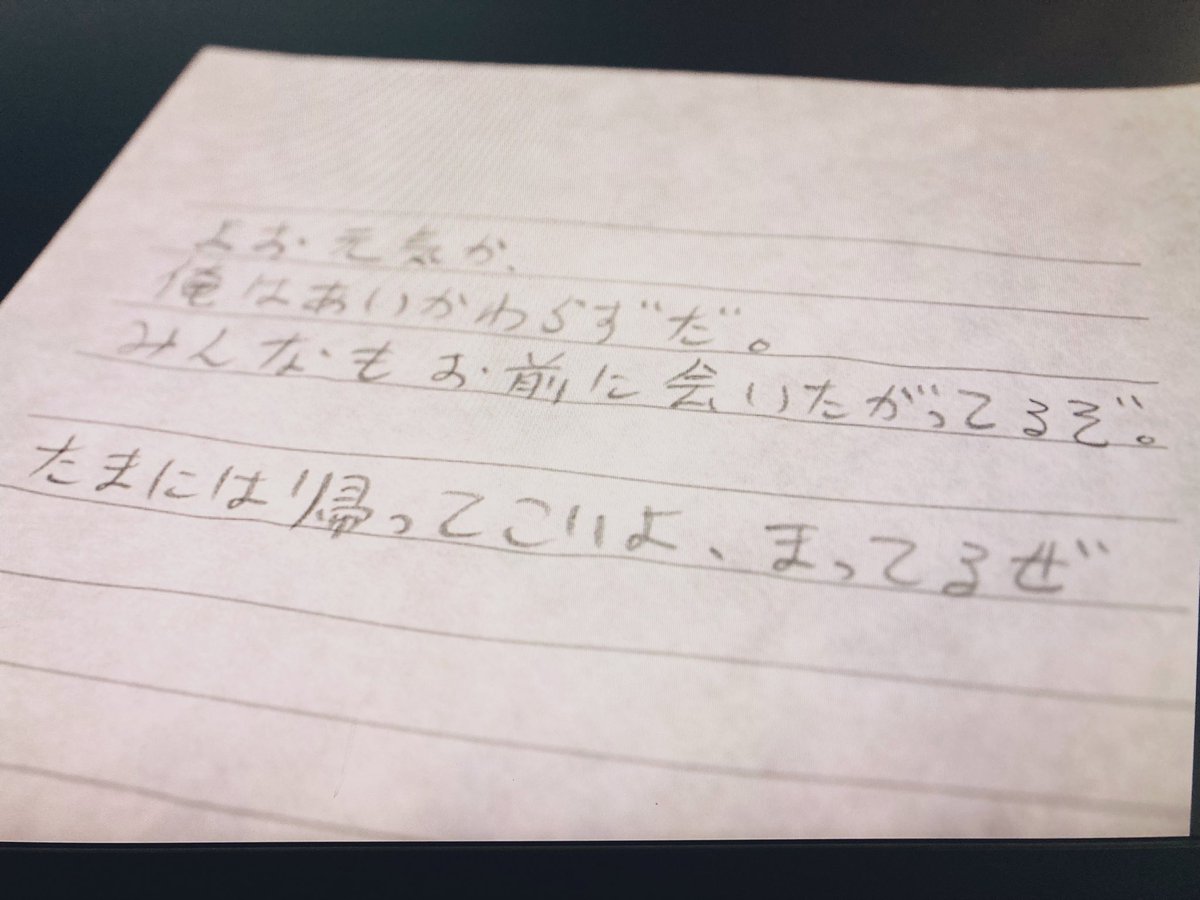 よお元気か、
俺はあいかわらずだ。
みんなもお前に会いたがってるぞ。
たまには帰ってこいよ、まってるぜ